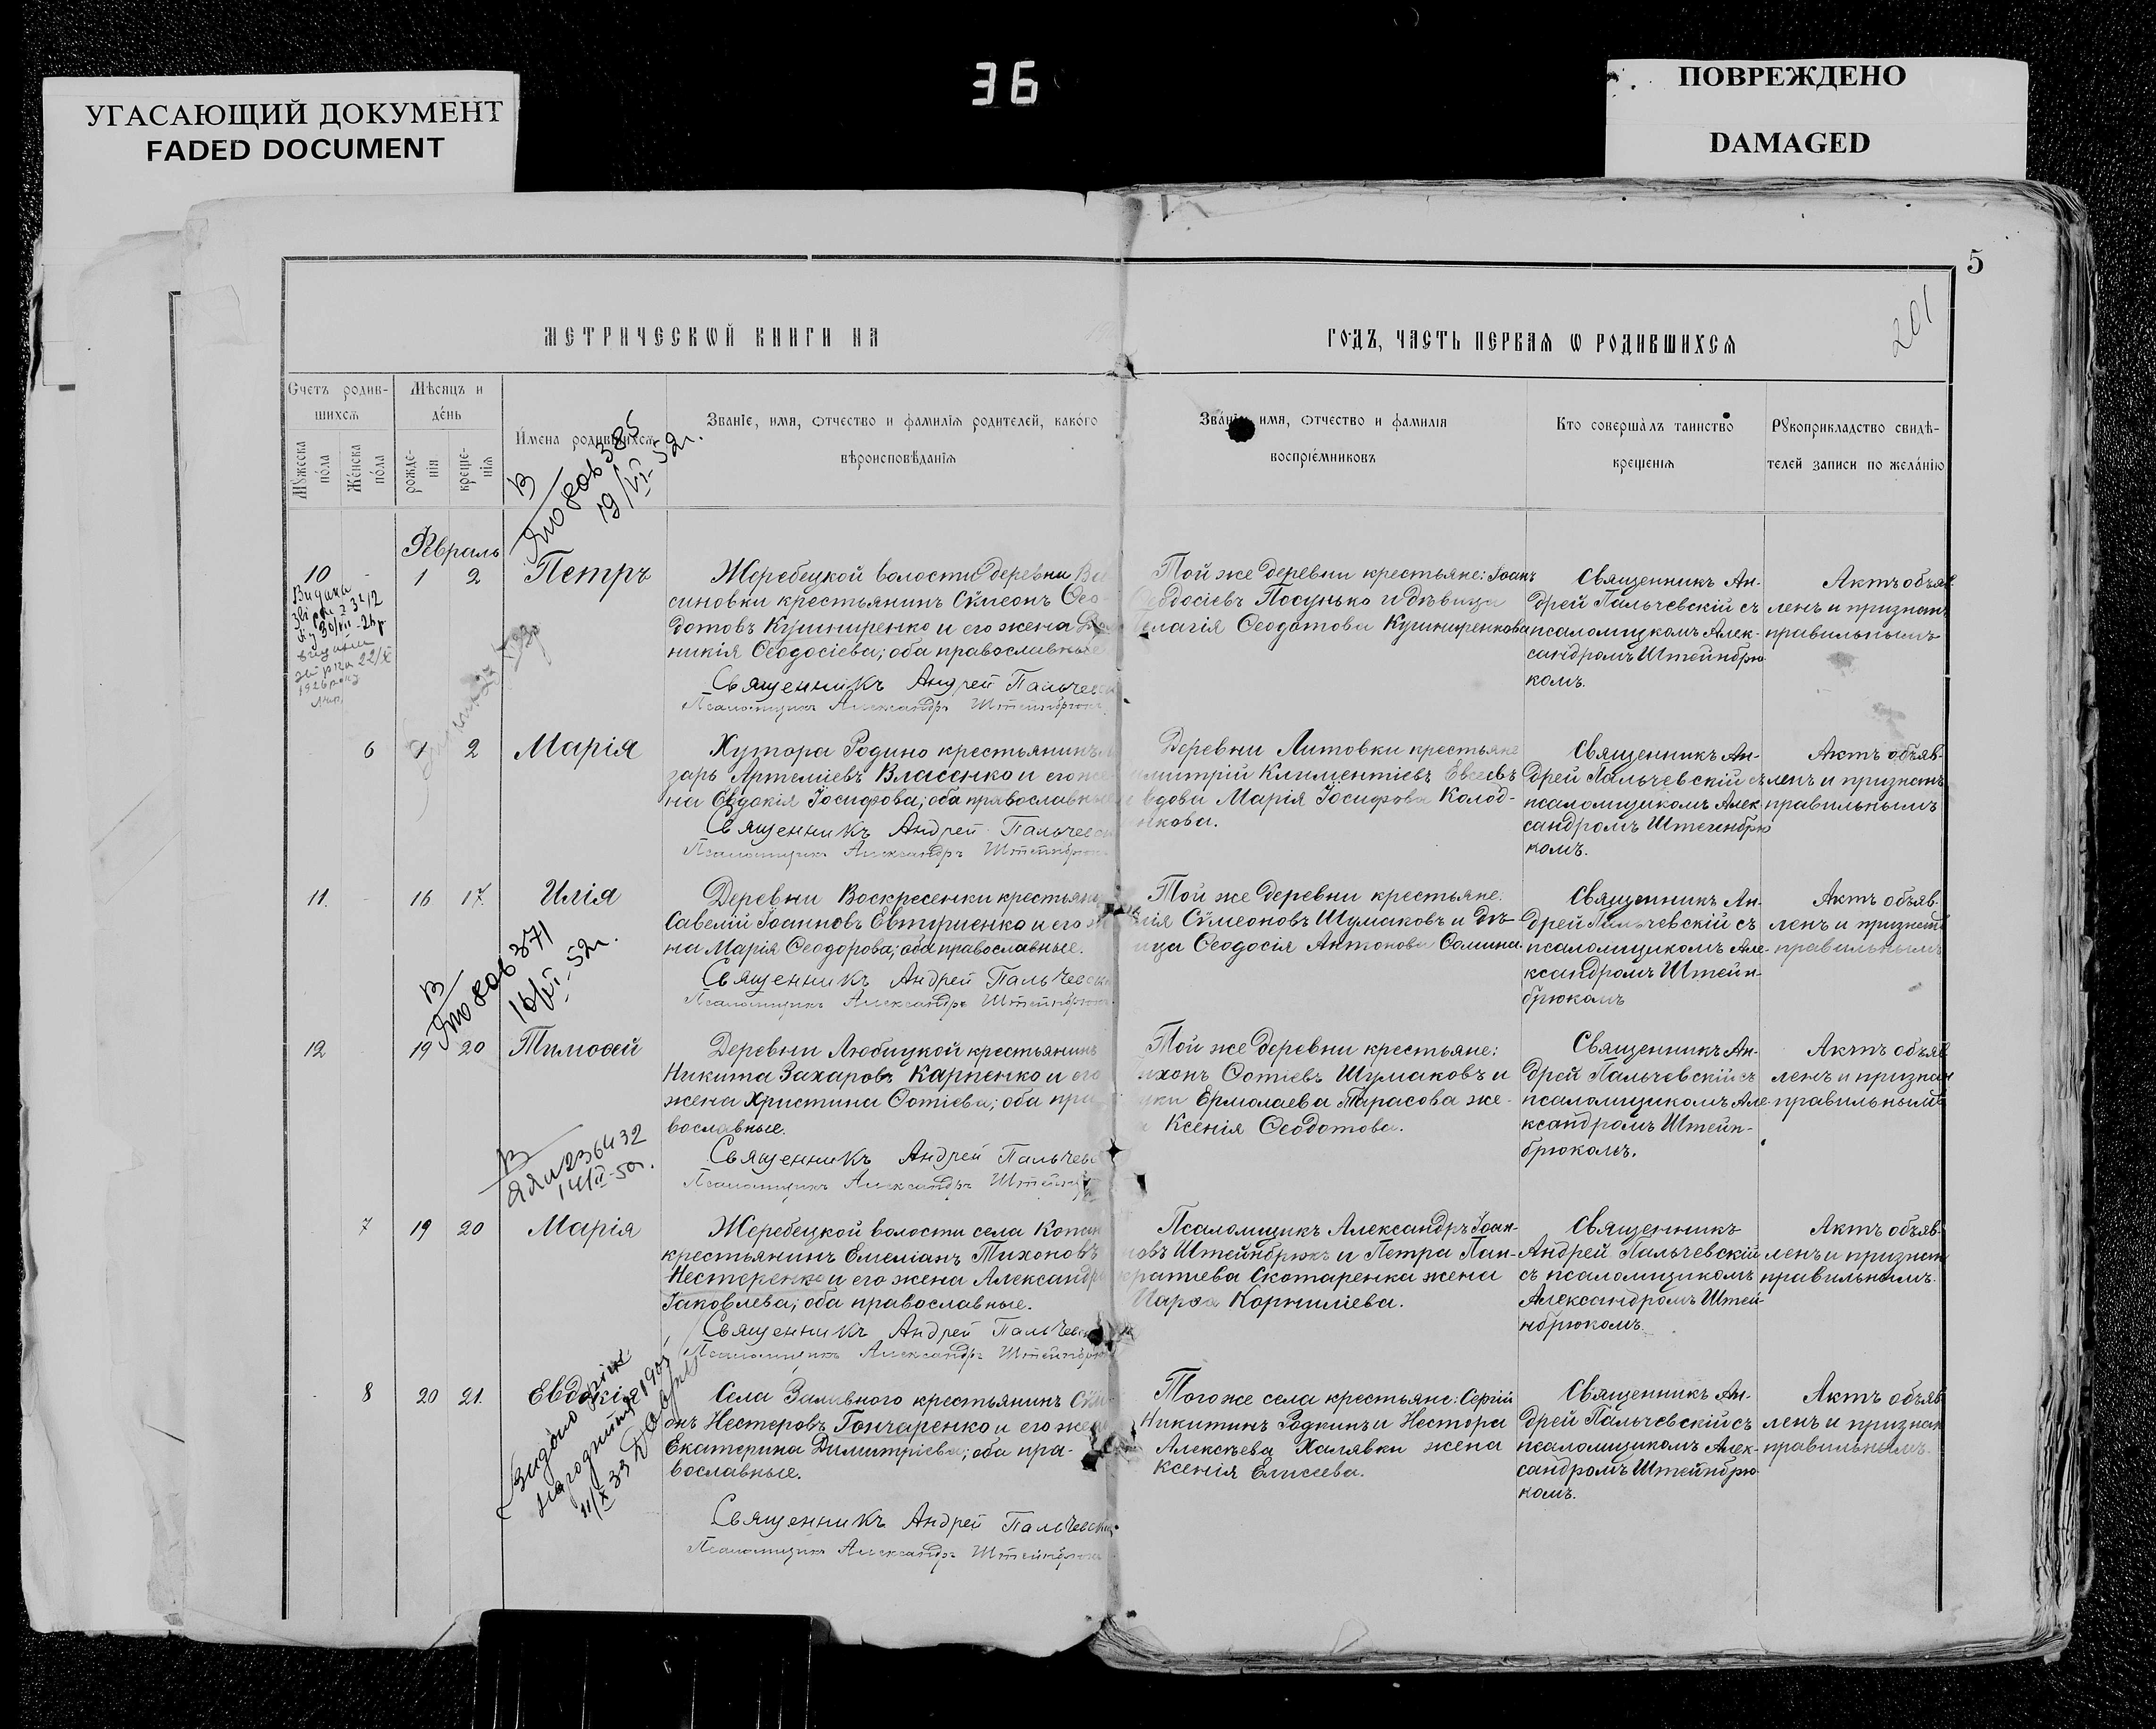 36
УГАСАЮЩИЙ ДОКУМЕНТ
FADED DOCUMENT
ПОВРЕЖДЕНО
DAMAGED
5
201
МЕТРИЧЕСКѠЙ КНИГИ НА
ГОДЪ, ЧАСТЬ ПЕРВАѦ Ѡ РОДИВШИХСѦ
Счетъ родив-
шихсѧ
Мꙋжеска пола
Женска пола
Мѣсяцъ и
день
рожде-
нія
креще-
нія
Имена родившихсѧ
Званіе, имя, ѡтчество и фамилія родителей, какого
вѣроисповѣданія
Званіе, имя, ѡтчество и фамилія
воспріемниковъ
Кто совершалъ таинство
крещенія
Рꙋкоприкладство свидѣ-
телей записи по желанію
В
385
19/VI-52г.
Февраль
10 - 1 2 Петръ
Жеребецкой волости деревни
синовки крестьянинъ Сѵмеонъ Ѳео-
дотовъ Кушниренко и его жена
никія Ѳеодосіева; оба православные
Священникъ Андрей Пальчевскі
Псаломщикъ Александръ Штейнбрюкъ
Той же деревни крестьяне: Іоанъ
Ѳеодосіевъ Посунько и дѣвица
Пелагія Ѳеодотова Кушниренкова
Священникъ Ан-
дрей Пальчевскій съ
псаломщикомъ Алек-
сандромъ Штейнбрю
комъ.
Актъ объяв-
ленъ и признанъ
правильнымъ
6 1 2 Марія
Хутора Родино крестьянинъ
зарь Артеміевъ Власенко и его же
на Евдокія Іосифова; оба православные
Священникъ Андрей Пальчевск
Псаломщикъ Александръ Штейнбрюкъ
Деревни Литовки крестьяне
имитрій Климентіевъ Евсеевъ
и вдова Марія Іосифова Колод-
никова.
Священникъ Ан-
дрей Пальчевскій съ
псаломщикомъ Алек-
сандромъ Штейнбрю
комъ.
Актъ объяв-
ленъ и признанъ
правильнымъ
11. - 16 17. Илія
Деревни Воскресенки крестьянинъ
Савелій Іоанновъ Евтушенко и его же
на Марія Ѳеодорова; оба православные.
Священникъ Андрей Пальчевскі
Псаломщикъ Александръ Штейнбрюкъ
Той же деревни крестьяне:
сія Сѵмеоновъ Шумаковъ и дѣ-
вица Ѳеодосія Антонова Сомина.
Священникъ Ан-
дрей Пальчевскій съ
псаломщикомъ Але-
ксандромъ Штейн-
брюкомъ
Актъ объяв-
ленъ и признанъ
правильнымъ
В
371
16/VI-52г.
12 19 20 Тимоѳей
Деревни Любицкой крестьянинъ
Никита Захаровъ Карпенко и его
жена Христина Ѳотіева; оба пра
вославные.
Священникъ Андрей Пальчевс
Псаломщикъ Александръ Штейнбр
Той же деревни крестьяне:
ихонъ Ѳотіевъ Шумаковъ и
уки Ермолаева Тарасова же-
на Ксенія Ѳеодотова.
Священникъ Ан-
дрей Пальчевскій съ
псаломщикомъ Але-
ксандромъ Штейн-
брюкомъ.
Актъ объяв
ленъ и признан
правильнымъ
В
236432
7 19 20 Марія
Жеребецкой волости села Копан
крестьянинъ Емеліанъ Тихоновъ
Нестеренко и его жена Александра
Іаковлева; оба православные.
Священникъ Андрей Пальчевск
Псаломщикъ Александръ Штейнбрюк
Псаломщикъ Александръ Іоан-
новъ Штейнбрюкъ и Петра Пан-
кратіева Скотаренка жена
Марѳа Корниліева.
Священникъ
Андрей Пальчевскій
съ псаломщикомъ
Александромъ Штей-
нбрюкомъ
Актъ объяв-
ленъ и признан
правильнымъ.
11/X 33
8 20 21. Евдокія
Села Заливного крестьянинъ Сѵме
онъ Нестеровъ Гончаренко и его жена
Екатерина Димитріева; оба пра-
вославные.
Священникъ Андрей Пальчевскій
Псаломщикъ Александръ Штейнбрюкъ
Того же села крестьяне: Сергій
Никитинъ Родкинъ и Нестора
Алексѣева Халявки жена
Ксенія Елисеева.
Священникъ Ан-
дрей Пальчевскій съ
псаломщикомъ Алек-
сандромъ Штейнбрю
комъ.
Актъ объяв
ленъ и признан
правильнымъ.